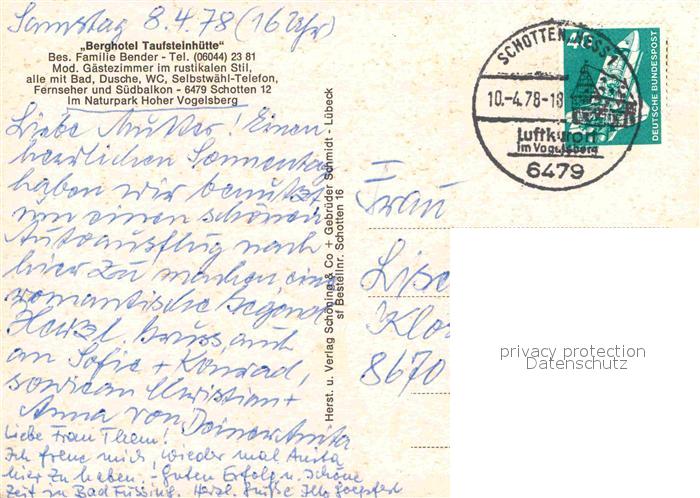 Samstag 8.4.78 (16 Uhr)
„Berghotel Taufsteinhütte“
Bes. Familie Bender - Tel. (06044) 23 81
Mod. Gästezimmer im rustikalen Stil,
alle mit Bad, Dusche, WC, Selbstwähl-Telefon,
Fernseher und Südbalkon - 6479 Schotten 12
Im Naturpark Hoher Vogelsberg
Liebe Mutter! Einen
herrlichen Sonnentag
haben wir benutzt
um einen schönen
Autoausflug nach
hier zu machen, eine
romantische Gegend
Herzl. Gruss auch
an Sofie + Konrad,
sowie an Christian +
Anna von Deiner Anita
Liebe Frau Them!
Ich freue mich, wieder mal Anita
hier zu haben. - Guten Erfolg u. schöne
Zeit in Bad Füssing. Herzl. Grüße
Herst. u. Verlag Schöning & Co + Gebrüder Schmidt - Lübeck
sf Bestellnr. Schotten 16
SCHOTTEN, HESS 1
10.-4.78-18
Luftkurort
im Vogelsberg
6479
40
DEUTSCHE BUNDESPOST
Frau
8670
privacy protection
Datenschutz